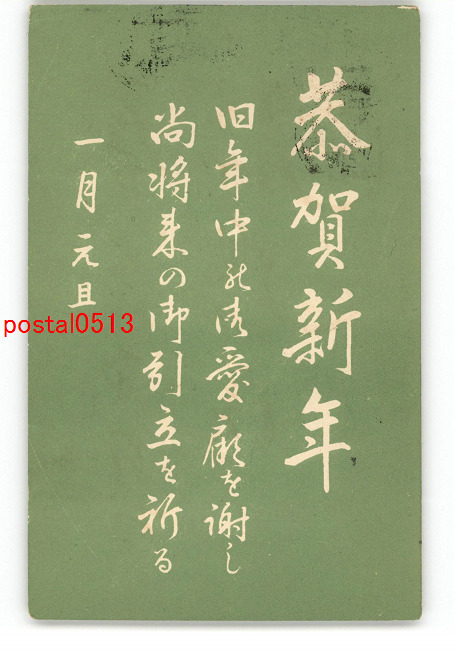 恭賀新年
旧年中の御愛顧を謝し
尚将来の御引立を祈る
一月元旦
postal0513